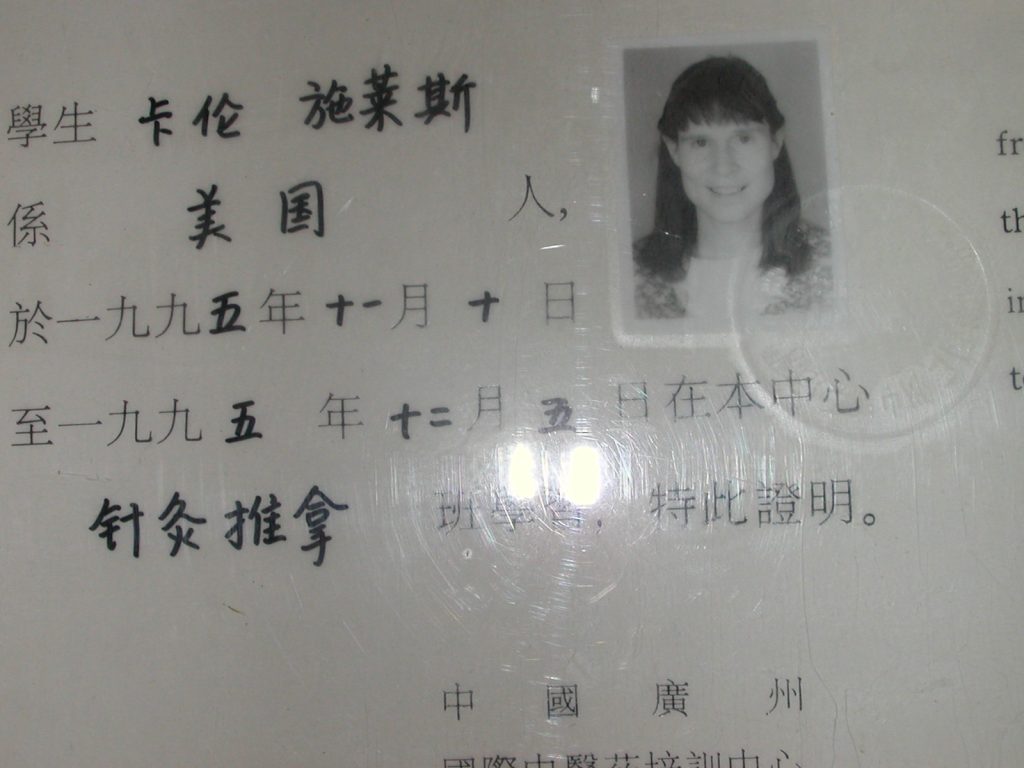 學生 卡伦 施莱斯
係 美国 人,
於一九九五年十一月十日
至一九九五年十二月五日在本中心
针灸推拿 班學習, 特此證明。
中國廣州
國際中醫药培訓中心
fr
th
in
to